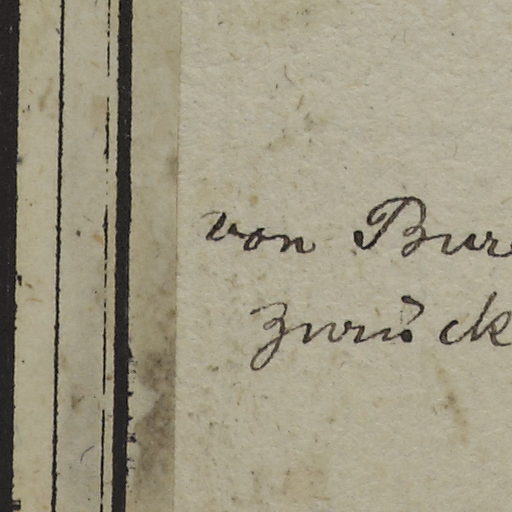 von Bur
zurück